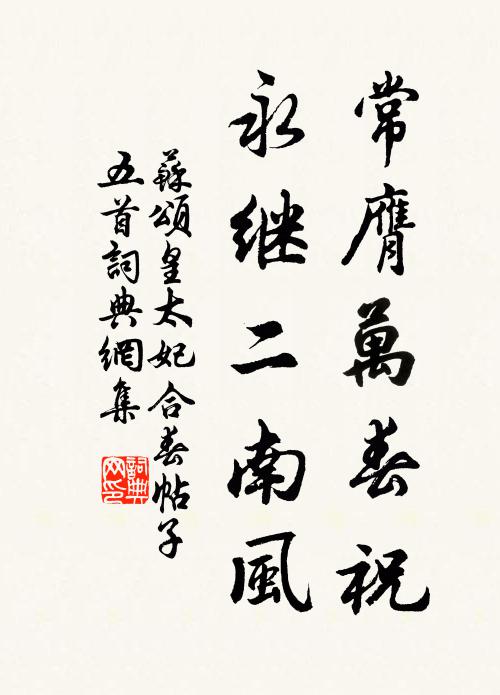 常膺萬春祝
永继二南風
蘇頌皇太妃合春帖子
五首詞典網集
詞典
网印